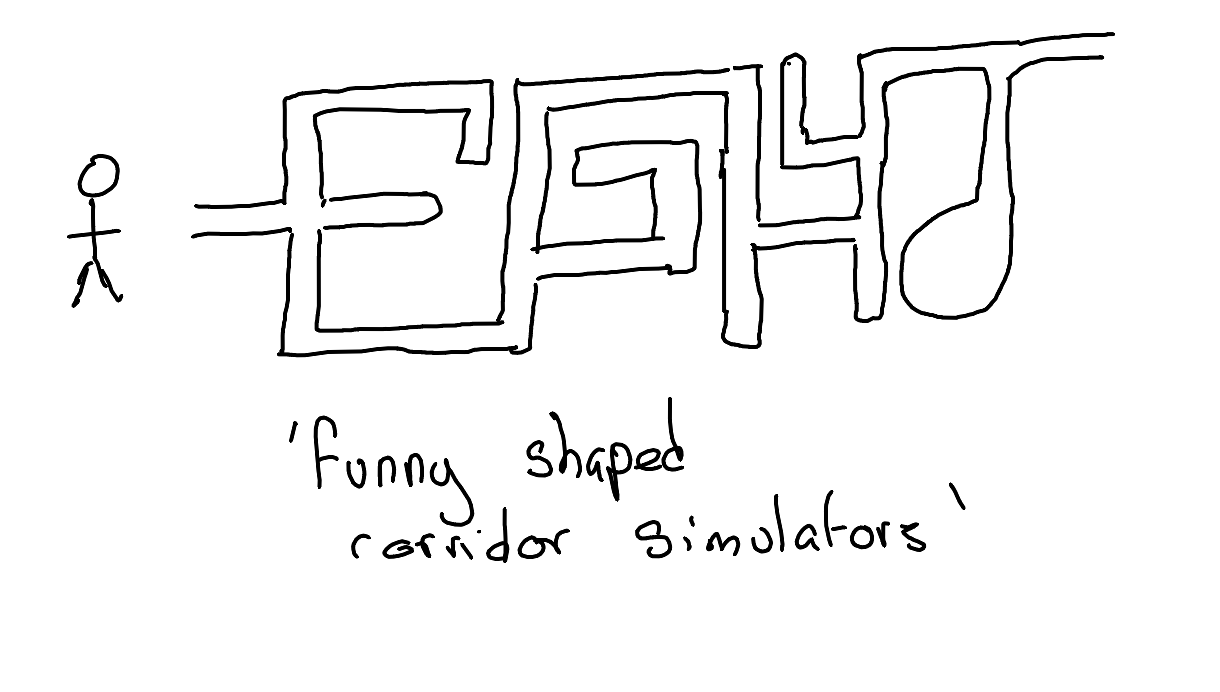 'funny shaped
corridor simulators'